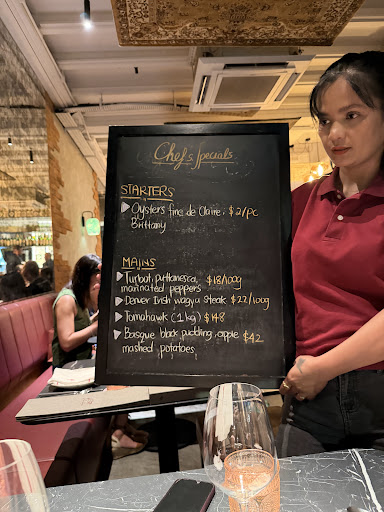 Chef's Specials
STARTERS
Oysters fine de Claire, $2/PC
Brittany
MAINS
Turbot, puttanesca, $18/100g
marinated peppers
Denver Irish wagyu steak $22/100g
Tomahawk (1kg) $148
Basque black pudding, apple $42
mashed potatoes